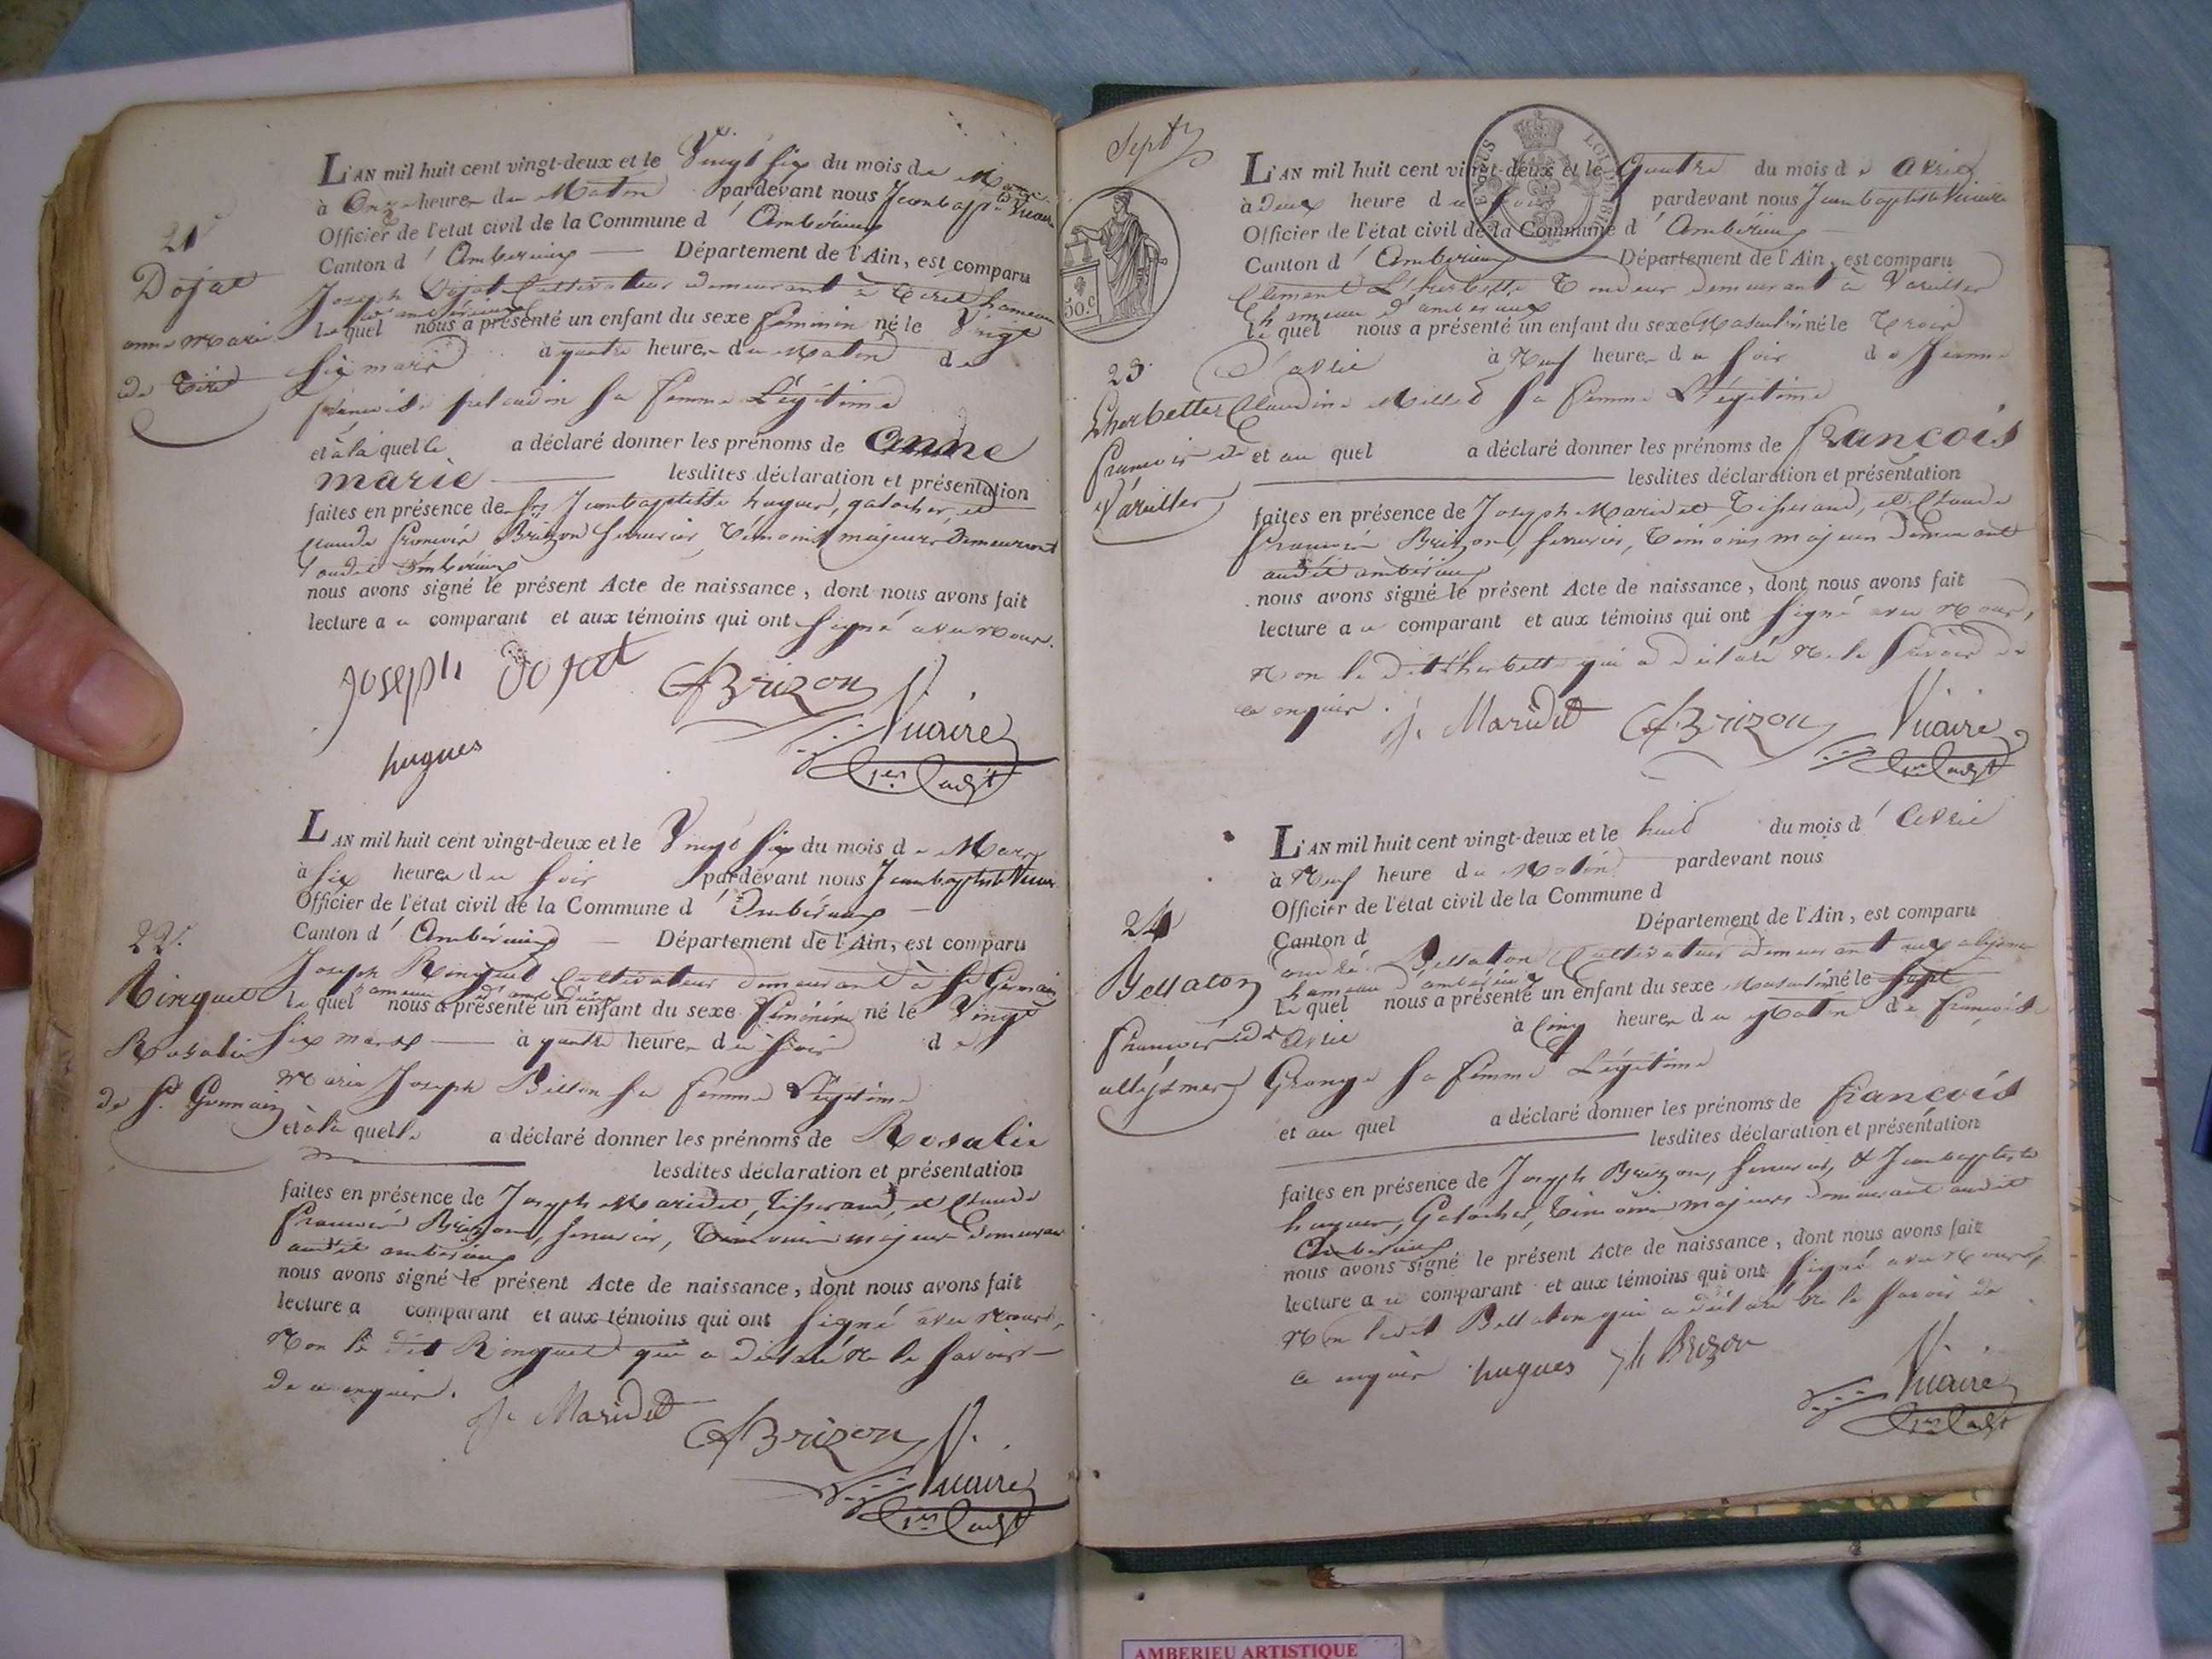 21
Dojat
anne marie
de Tiret
L'AN mil huit cent vingt-deux et le Vingt six du mois de Mars
à Onze heures du Matin pardevant nous Jeanbapte Vicaire
Officier de l'état civil de la Commune d'Ambérieux
Canton d'Ambérieux Département de l'Ain, est comparu
Joseph Dojat Cultivateur demeurant à Tiret hameau
d'ambérieux
le quel nous a présenté un enfant du sexe féminin né le Vingt
six mars à quatre heures du Matin de
françoise sa femme Légitime
et à la quelle a déclaré donner les prénoms de anne
marie lesdites déclaration et présentation
faites en présence de Jeanbaptiste hugues, galocher, et
Claude françois Brizon serrurier, Témoins majeurs Demeurant
audit Ambérieux
nous avons signé le présent Acte de naissance, dont nous avons fait
lecture au comparant et aux témoins qui ont signé avec Nous.
joseph dojat CfBrizon
Vicaire
hugues
1er adjt
22.
Ringuet
Rosalie
de St Germain
L'AN mil huit cent vingt-deux et le Vingt six du mois de Mars
à six heures du soir pardevant nous Jeanbaptiste Vicaire
Officier de l'état civil de la Commune d'Ambérieux
Canton d'Ambérieux Département de l'Ain, est comparu
Joseph Ringuet Cultivateur demeurant à St Germain
hameau d'ambérieux
le quel nous a présenté un enfant du sexe féminin né le Vingt
six mars à quatre heures du soir de
Marie Joseph Billon sa femme Légitime
et à la quelle a déclaré donner les prénoms de Rosalie
lesdites déclaration et présentation
faites en présence de Joseph Maridet, Tisserand, et Claude
françois Brizon, serrurier, Témoins majeurs Demeurant
audit ambérieux
nous avons signé le présent Acte de naissance, dont nous avons fait
lecture a comparant et aux témoins qui ont signé avec nous,
Non le dit Ringuet qui a déclaré Ne le savoir
de ce enquis.
J. Maridet CfBrizon
Vicaire
1er adjt
Sept
50.C
23.
Lherbette
françois de
Vareilles
L'AN mil huit cent vingt-deux et le Quatre du mois de avril
à deux heure du soir pardevant nous Jeanbaptiste Vicaire
Officier de l'état civil de la Commune d'Ambérieux
Canton d'Ambérieux Département de l'Ain, est comparu
Clement L'herbette Tondeur demeurant à Vareilles
hameau d'ambérieux
le quel nous a présenté un enfant du sexe Masculin né le Trois
d'avril à Neuf heures du soir de Jeanne
Claudine Millet sa femme Légitime
et au quel a déclaré donner les prénoms de françois
lesdites déclaration et présentation
faites en présence de Joseph Maridet Tisserand, et Claude
françois Brizon, serrurier, Témoins majeurs demeurant
audit ambérieux
nous avons signé le présent Acte de naissance, dont nous avons fait
lecture au comparant et aux témoins qui ont signé avec Nous,
Non le dit Lherbette qui a déclaré Ne le savoir de
ce enquis.
J. Maridet CfBrizon Vicaire
1er adjt
24
Bellaton
françois des
allysmes
L'AN mil huit cent vingt-deux et le huit du mois d'avril
à Neuf heure du Matin pardevant nous
Officier de l'état civil de la Commune d
Canton d Département de l'Ain, est comparu
andré Bellaton Cultivateur demeurant aux alysmes
hameau d'ambérieux
le quel nous a présenté un enfant du sexe Masculin né le sept
avril à Cinq heures du Matin de françoise
Grange sa femme Légitime
et au quel a déclaré donner les prénoms de françois
lesdites déclaration et présentation
faites en présence de Joseph Brizon, serrurier, & Jeanbaptiste
hugues, Galocher, Témoins majeurs demeurant audit
Ambérieux
nous avons signé le présent Acte de naissance, dont nous avons fait
lecture au comparant et aux témoins qui ont signé avec Nous,
Non ledit Bellaton qui a déclaré Ne le savoir de
ce enquis hugues Jh Brizon
Vicaire
1er adjt
AMBERIEU ARTISTIQUE